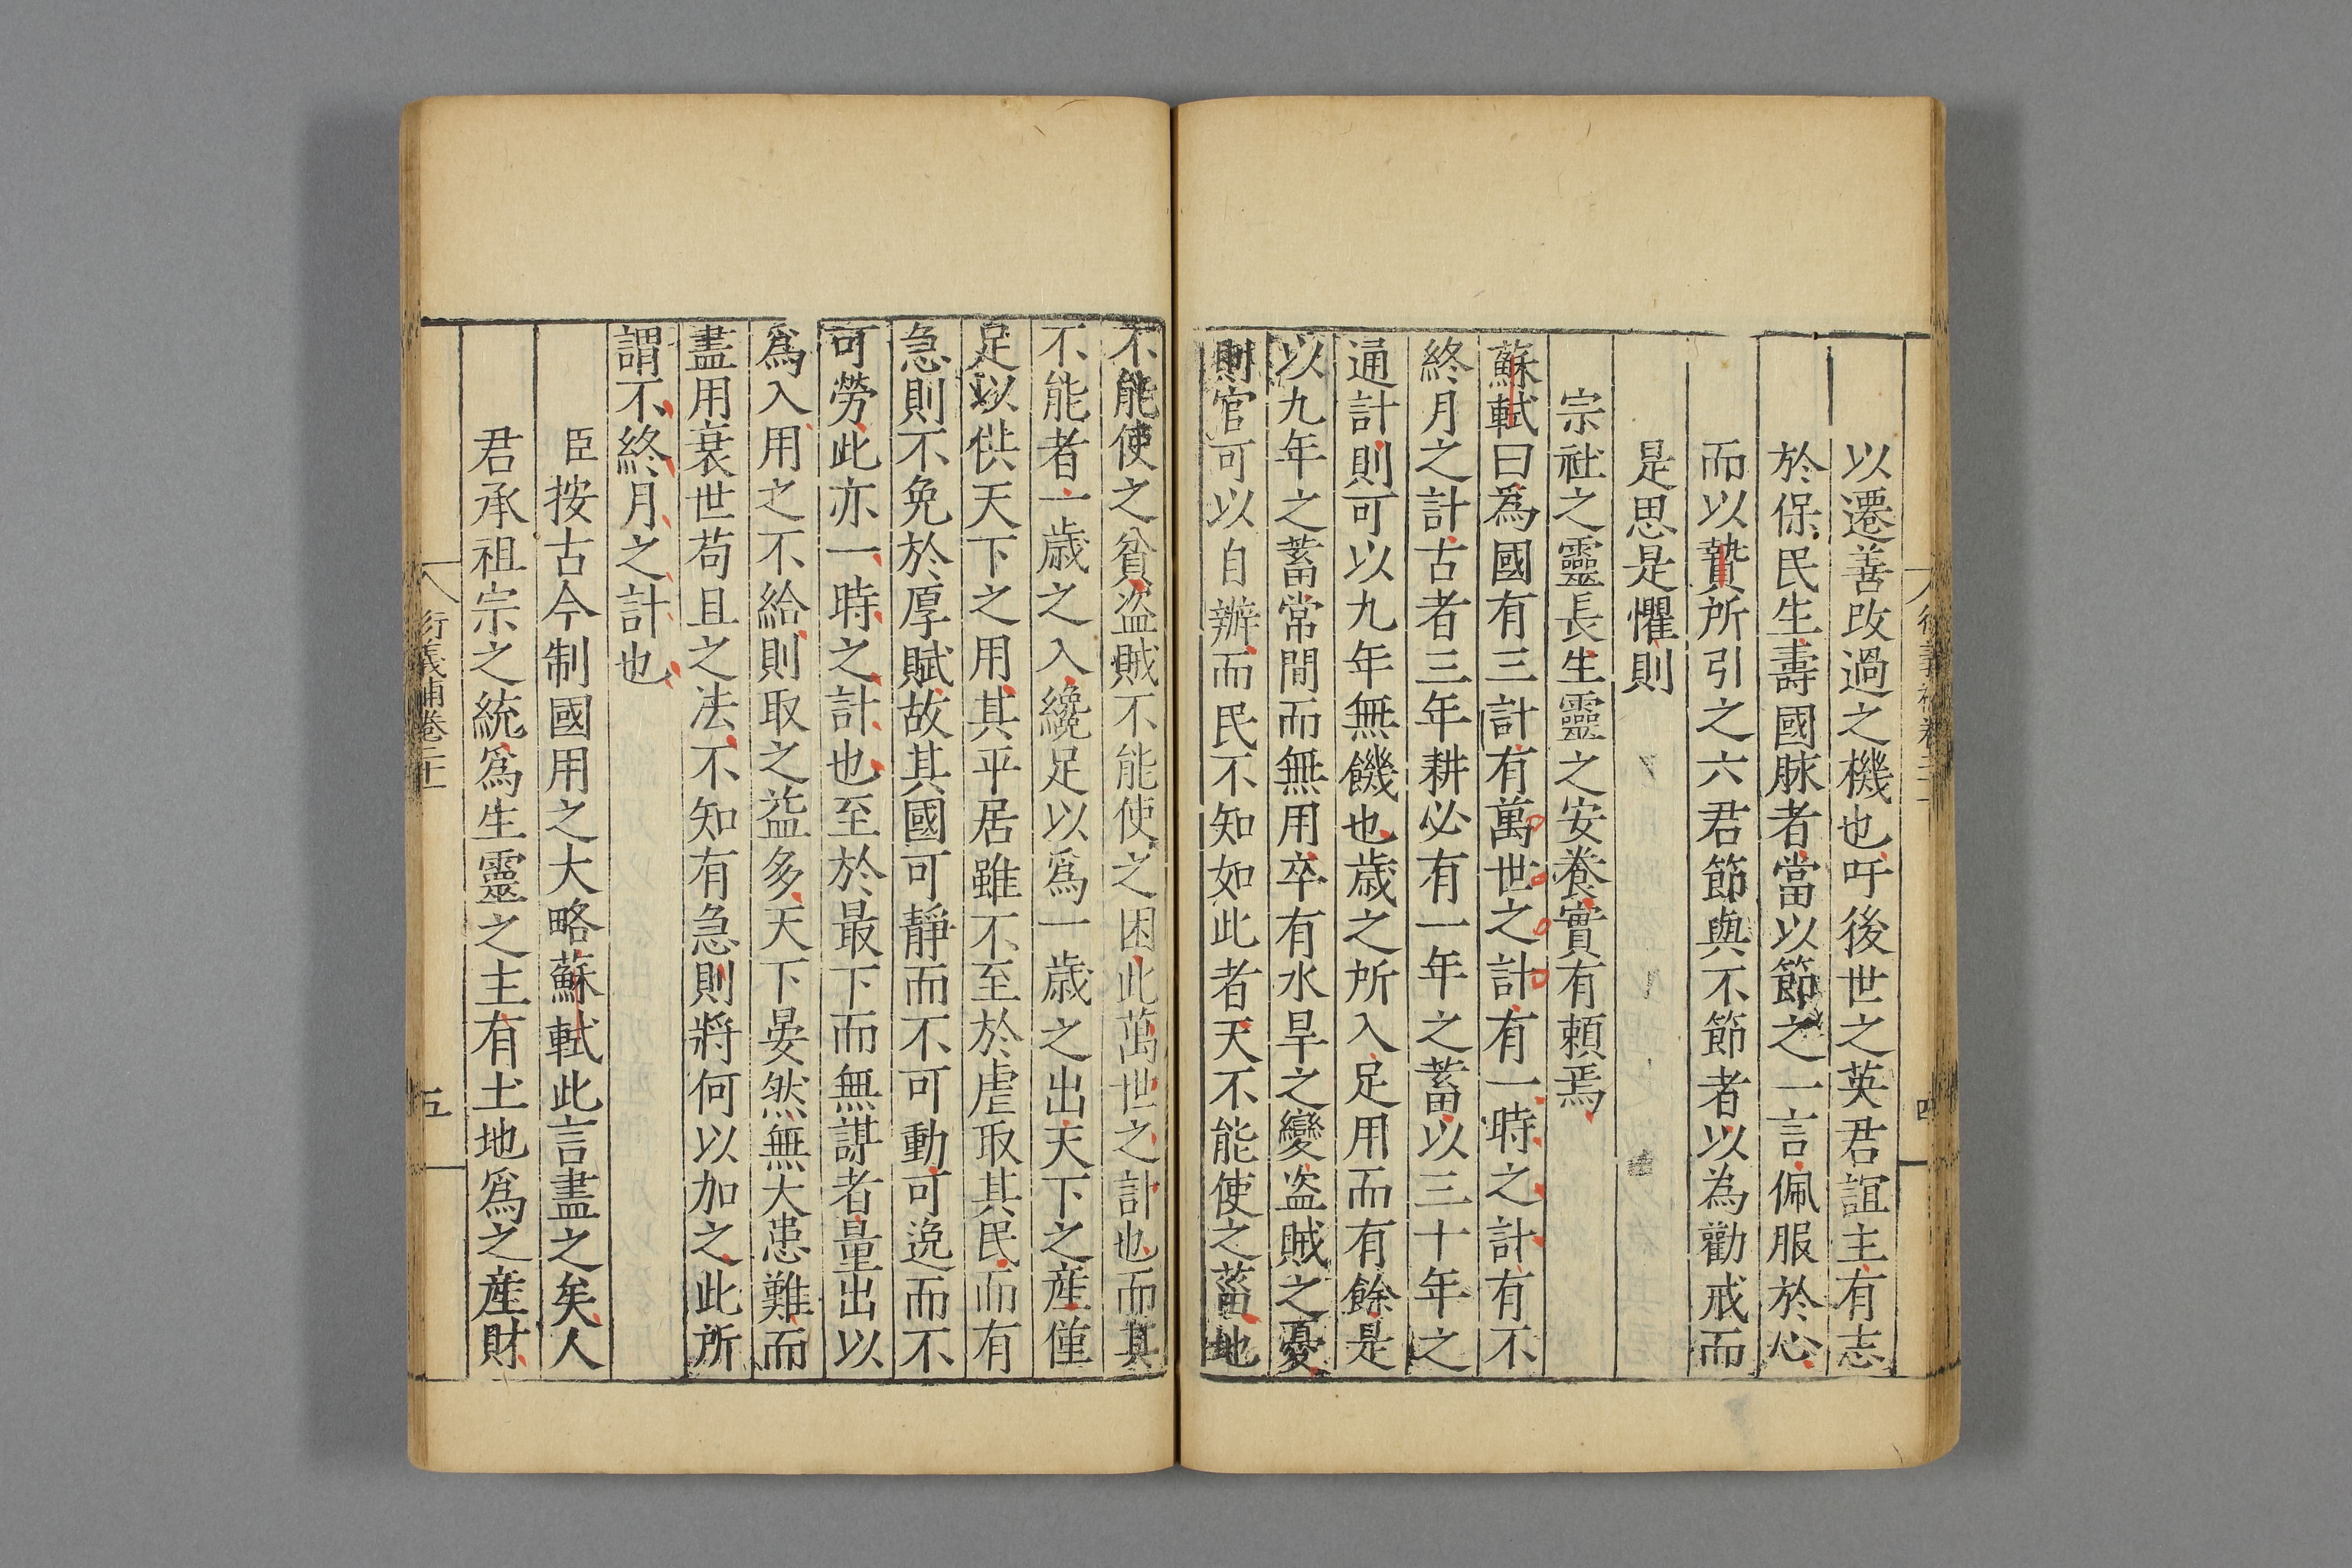 以遷善改過之機也吁後世之英君誼主有志
於保民生壽國脉者當以節之一言佩服於心
而以贄所引之六君節與不節者以為勸戒而
是思是懼則
宗社之靈長生靈之安養實有賴焉
蘇軾曰爲國有三計有萬世之計有一時之計有不
終月之計古者三年耕必有一年之蓄以三十年之
通計則可以九年無饑也歲之所入足用而有餘是
以九年之蓄常閒而無用卒有水旱之變盜賊之憂
則官可以自辦而民不知如此者天不能使之菑地
不能使之貧盜賊不能使之困此萬世之計也而其
不能者一歲之入纔足以爲一歲之出天下之産僅
足以供天下之用其平居雖不至於虐取其民而有
急則不免於厚賦故其國可靜而不可動可逸而不
可勞此亦一時之計也至於最下而無謀者量出以
爲入用之不給則取之益多天下晏然無大患難而
盡用衰世苟且之法不知有急則將何以加之此所
謂不終月之計也
臣按古今制國用之大略蘇軾此言盡之矣人
君承祖宗之統爲生靈之主有土地爲之産財
衍義補卷二十一
五